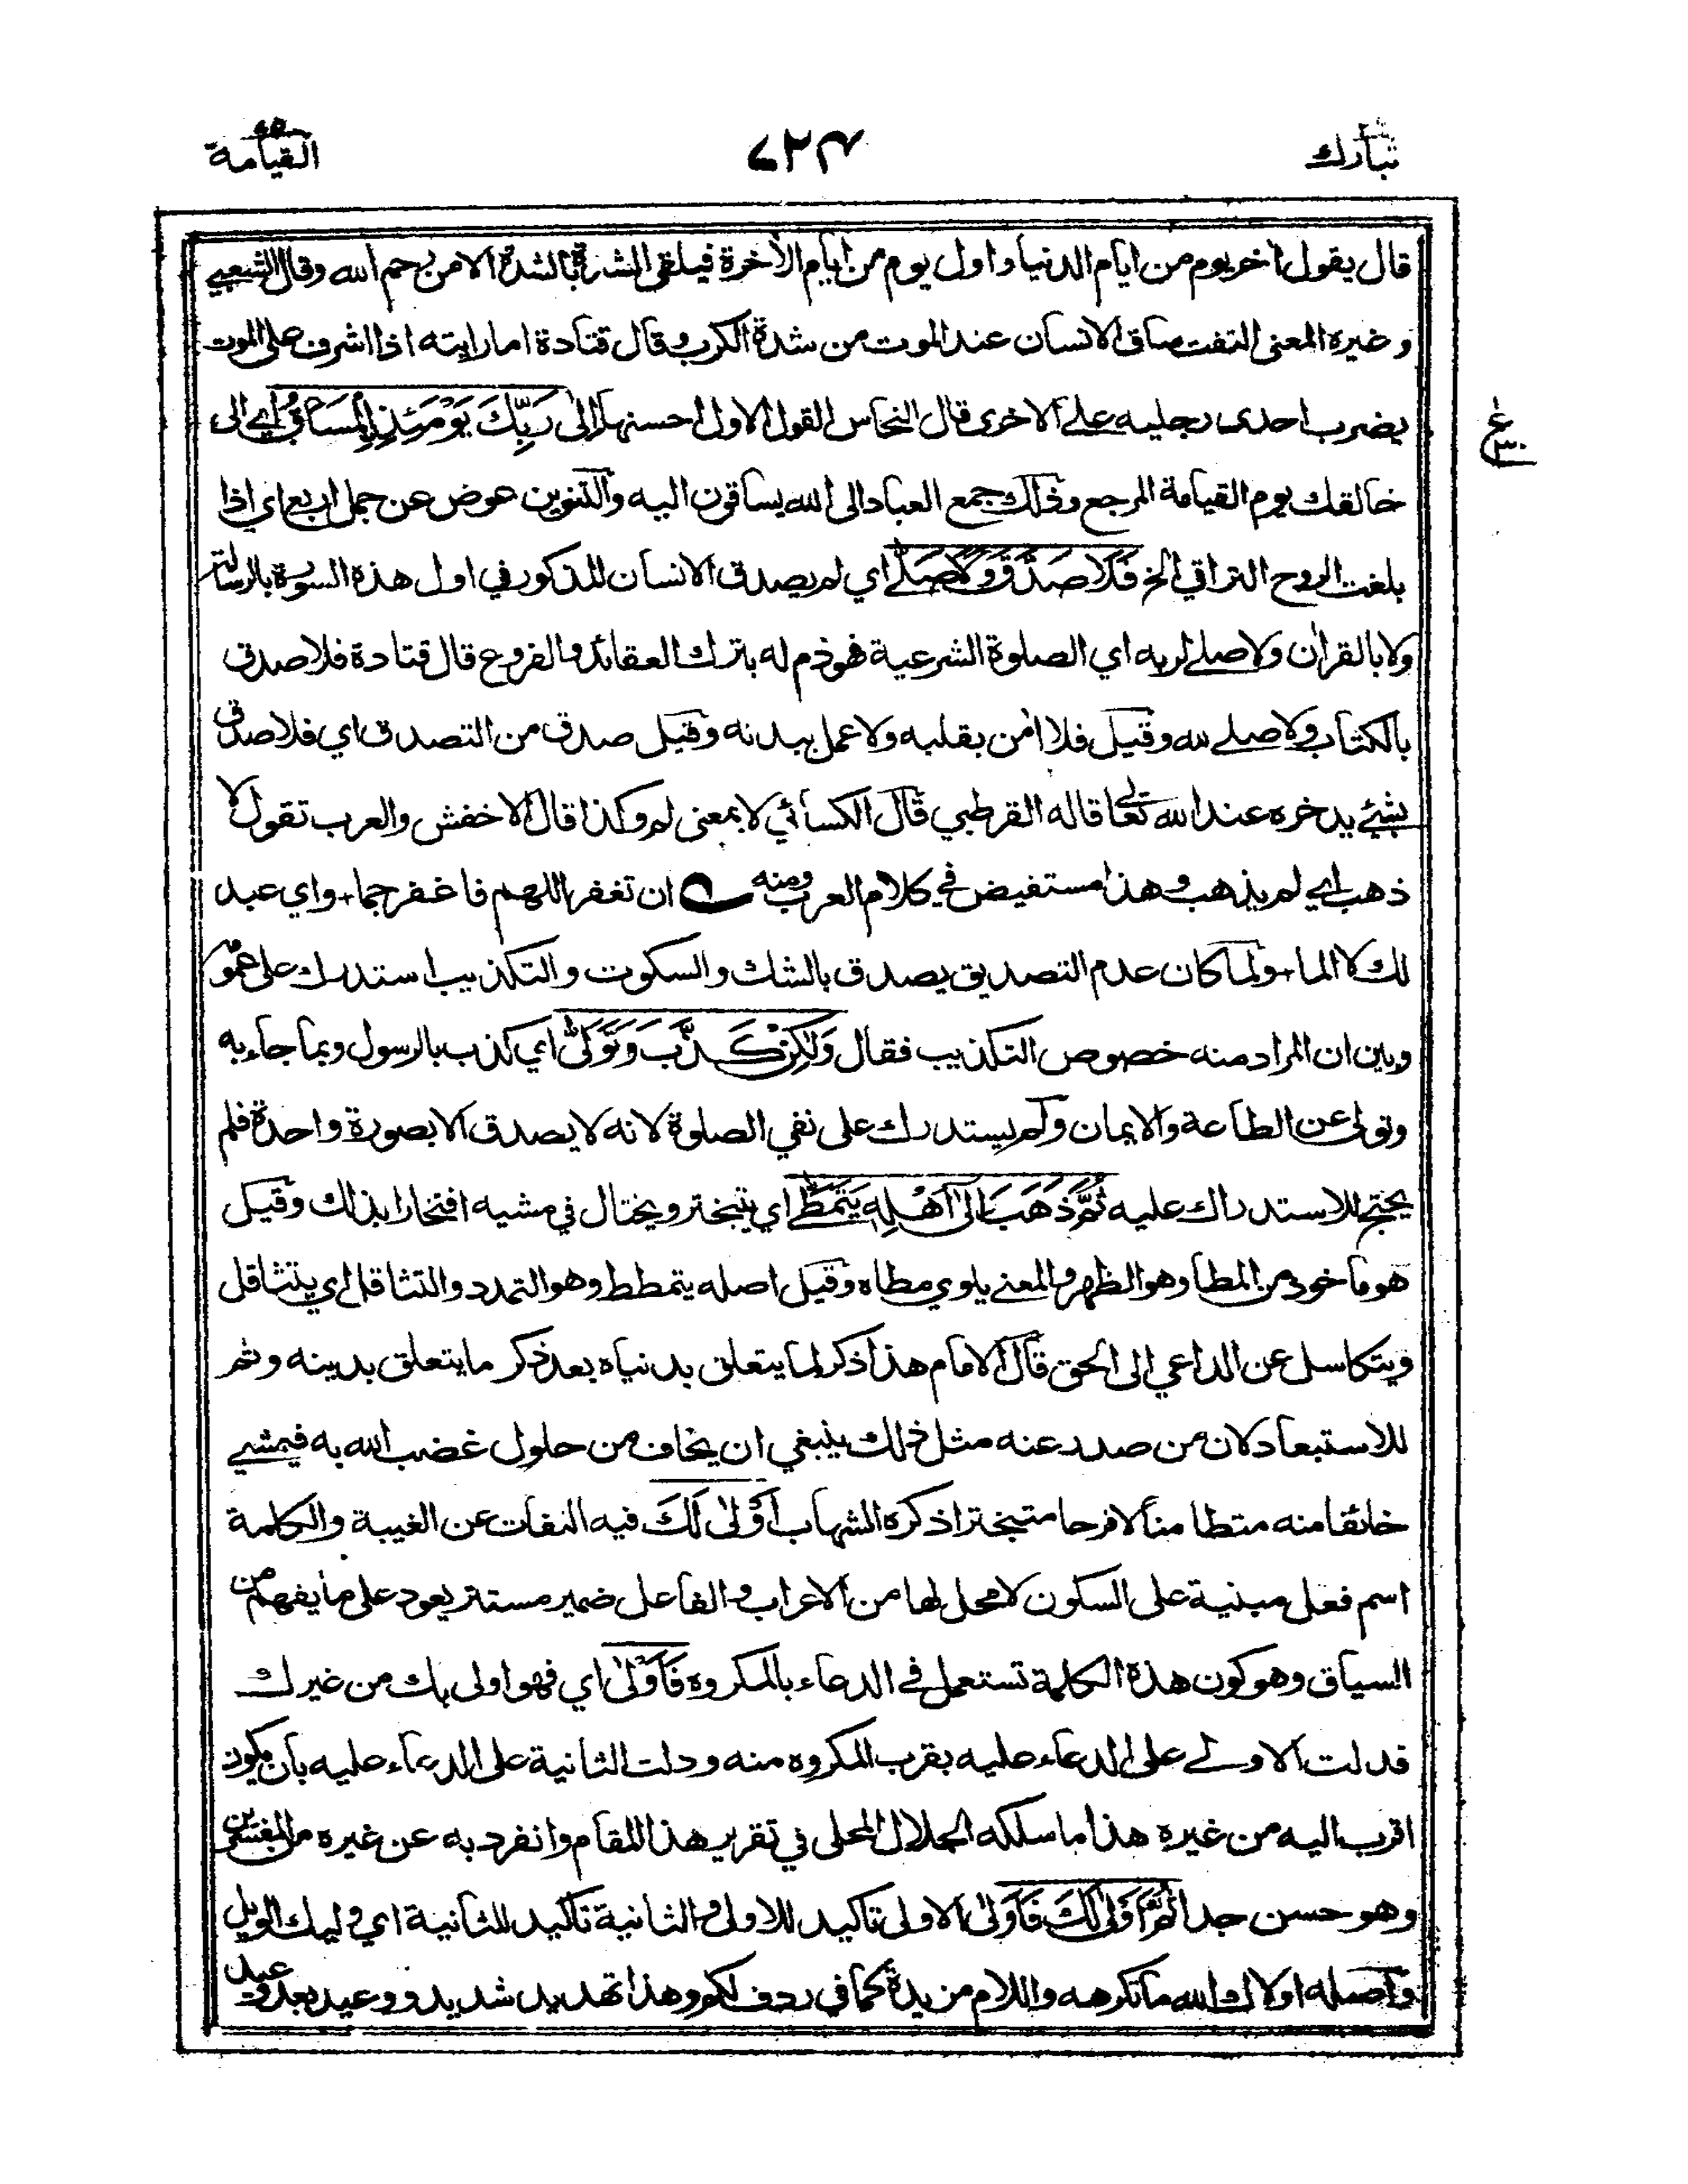 تبارك ٢٩
٤٣٧
القيامة ٧٥
قال يقول اخر يوم من ايام الدنيا واول يوم من ايام الأخرة فيلتقى الشدة بالشدة الا من رحم الله وقال الشعبي
وغيره المعنى التفت ساق الانسان عند الموت من شدة الكرب وقال قتادة اما رايته اذا اشرف على الموت
يضرب احدى رجليه على الاخرى قال النحاس القول الاول احسنها إِلىٰ رَبِّكَ يَوْمَئِذٍ الْمَسَاقُ اي الى
خالقك يوم القيامة المرجع وذلك جمع العباد الى الله يساقون اليه والتنوين عوض عن جمل اربع اي اذا
بلغت الروح التراقي الخ فَلَا صَدَّقَ وَلَا صَلّٰى اي لم يصدق الانسان المذكور في اول هذه السورة بالرسالة
ولا بالقرأن ولا صلى لربه اي الصلوة الشرعية فهو ذم له بترك العقائد والفروع قال قتادة فلا صدق
بالكتاب ولا صلى لله وقيل فلا أمن بقلبه ولا عمل ببدنه وقيل صدق من التصدق اي فلا صدق
بشئ يدخره عند الله تعالى قاله القرطبي قال الكسائي لا بمعنى لم وكذا قال الاخفش والعرب تقول لا
ذهب اي لم يذهب وهذا مستفيض في كلام العرب ومنه ان تغفر اللهم فاغفر جما + واي عبد
لك لا الما + ولما كان عدم التصديق يصدق بالشك والسكوت والتكذيب استدرك على عمومه
وبين ان المراد منه خصوص التكذيب فقال وَلٰكِنْ كَذَّبَ وَتَوَلّٰى اي كذب بالرسول وبما جاء به
وتولى عن الطاعة والايمان ولم يستدرك على نفي الصلوة لانه لا يصدق الا بصورة واحدة فلم
يحتج للاستدراك عليه ثُمَّ ذَهَبَ اِلىٰ اَهْلِهِ يَتَمَطّٰى اي يتبختر ويختال في مشيه افتخارا بذلك وقيل
هو ماخوذ من المطا وهو الظهر والمعنى يلوي مطاه وقيل اصله يتمطط وهو التمدد والتثاقل اي يتثاقل
ويتكاسل عن الداعي الى الحق قال الامام هذا ذكر لما يتعلق بدنياه بعد ذكر ما يتعلق بدينه وثم
للاستبعاد لان من صدر عنه مثل ذلك ينبغي ان يخاف من حلول غضب الله به فيمشي
خائفا منه متطامنا لا فرحا متبخترا ذكره الشهاب اَوْلىٰ لَكَ فيه التفات عن الغيبة والكلمة
اسم فعل مبنية على السكون لا محل لها من الاعراب والفاعل ضمير مستتر يعود على ما يفهم من
السياق وهو كون هذه الكلمة تستعمل في الدعاء بالمكروه فَاَوْلىٰ اي فهو اولى بك من غيرك
فدلت الاولى على الدعاء عليه بقرب المكروه منه ودلت الثانية على الدعاء عليه بأن يكون
اقرب اليه من غيره هذا ما سلكه الجلال المحلى في تقرير هذا المقام وانفرد به عن غيره من المفسرين
وهو حسن جدا ثُمَّ اَوْلىٰ لَكَ فَاَوْلىٰ الاولى تاكيد للاولى والثانية تاكيد للثانية اي وليك الويل
واصله اولاك الله ما تكرهه واللام مزيدة كما في ردف لكم وهذا تهديد شديد ووعيد بعد وعيد